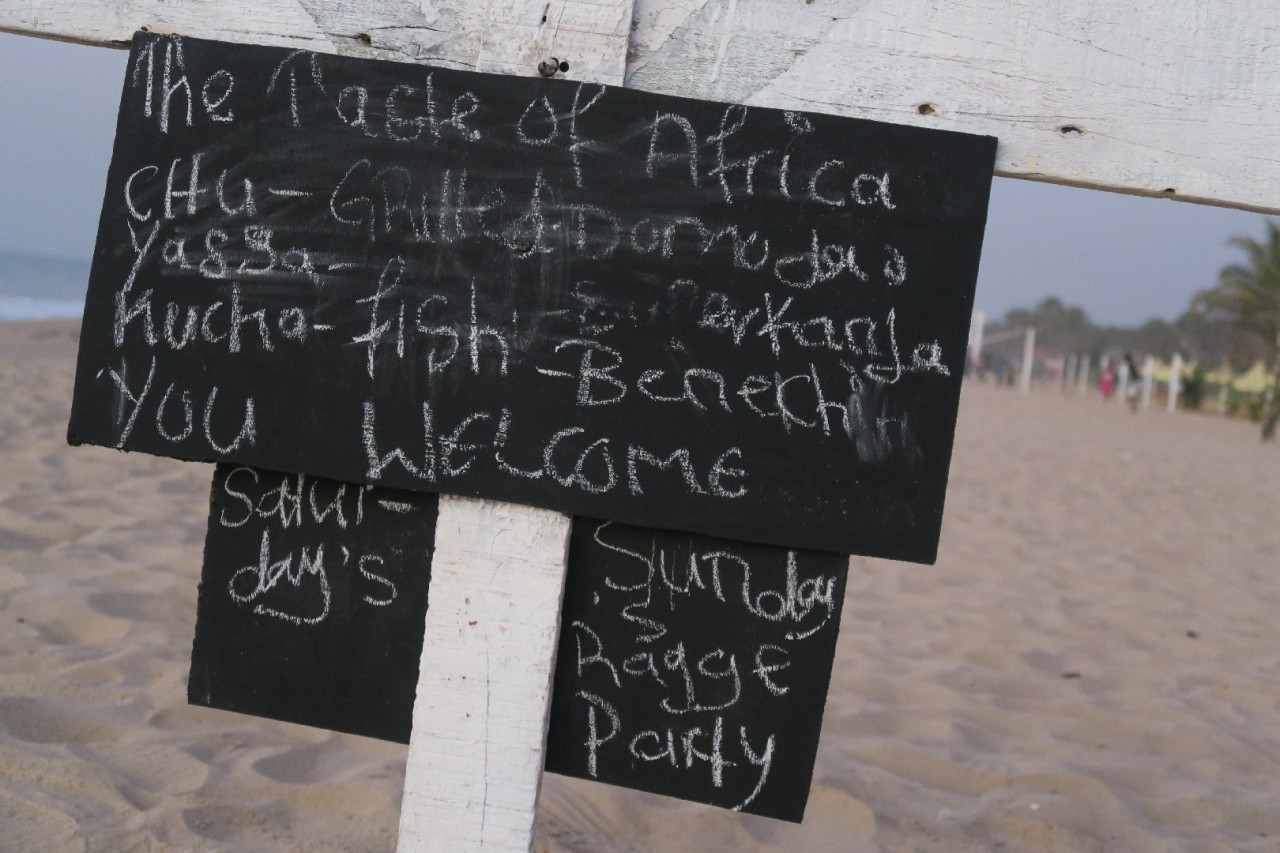 The Taste of Africa
CHU - GRilled Domodas
Yassa - SuperKanja
Kucha - fish - Benechin
YOU WELCOME
Satur-
day's
Sunday
s
Ragge
Party